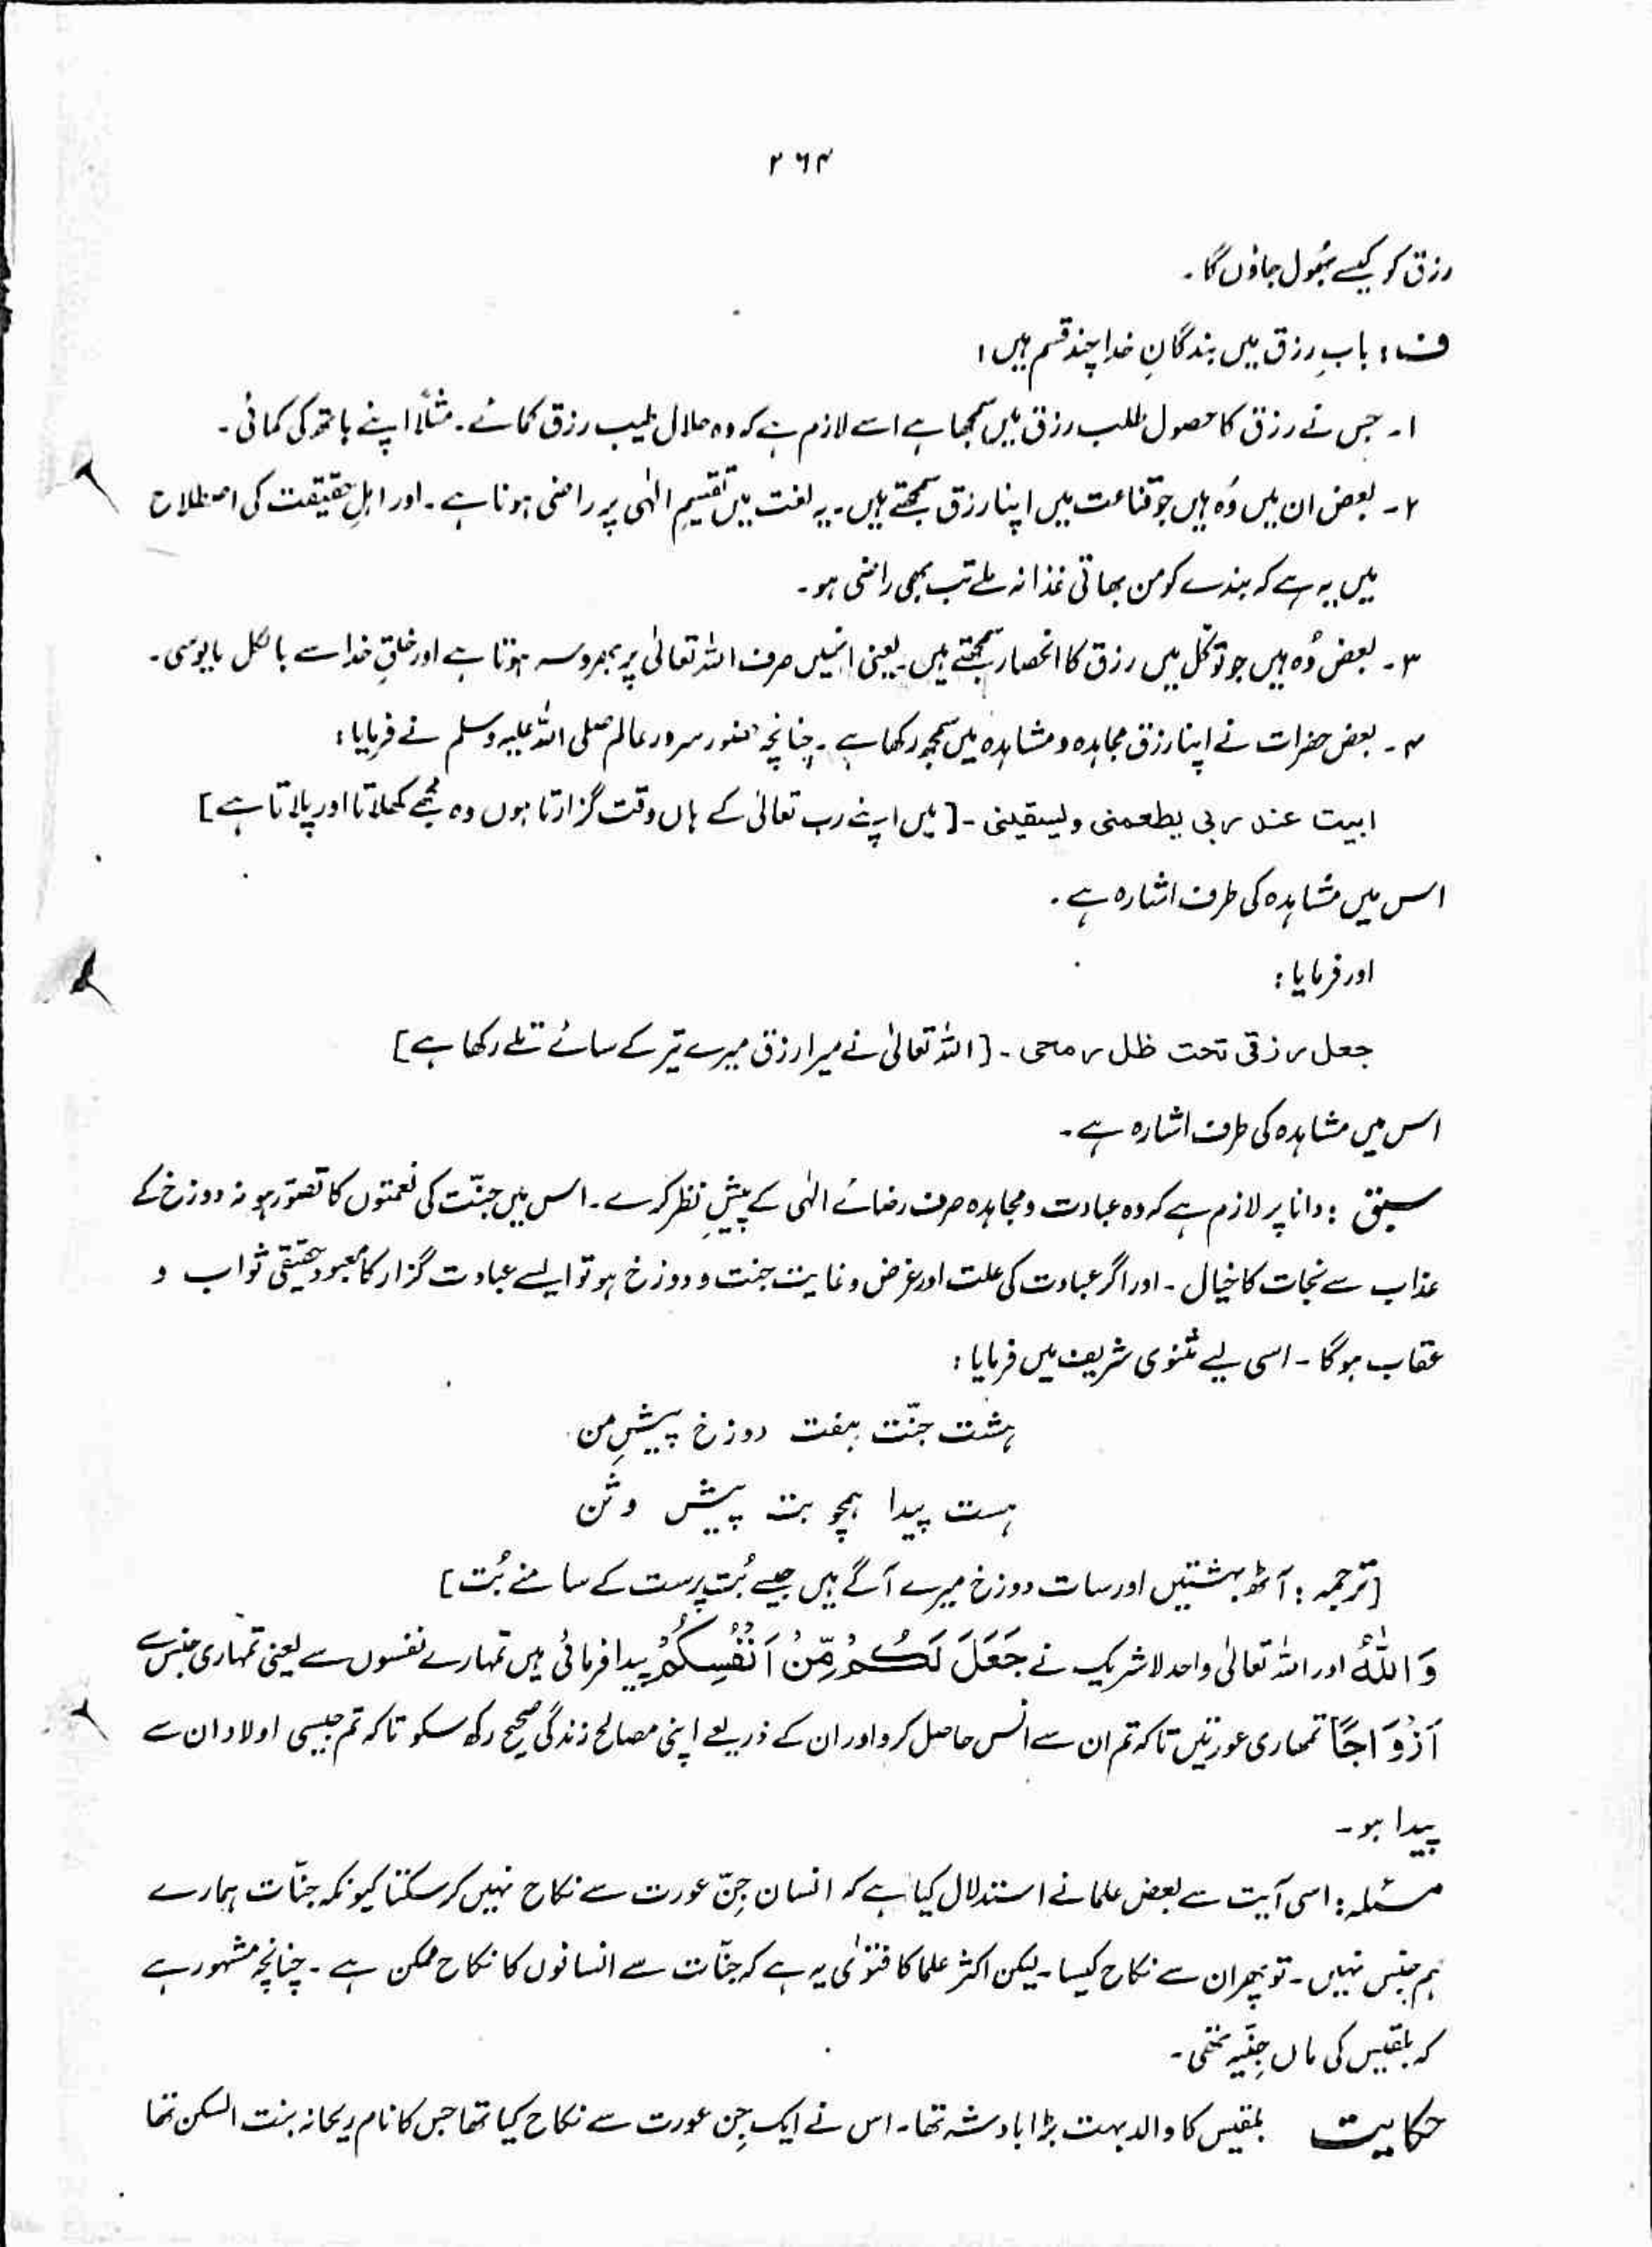 ۲۶۴
رزق کو کیسے بُھول جاؤں گا۔
ف : بابِ رزق میں بندگانِ خدا چند قسم ہیں :
۱۔ جس نے رزق کا حصول طلب رزق میں سمجھا ہے اسے لازم ہے کہ وہ حلال طیب رزق کمائے۔ مثلاً اپنے ہاتھ کی کمائی۔
۲۔ بعض ان میں وُہ ہیں جو قناعت میں اپنا رزق سمجھتے ہیں۔ یہ لغت میں تقسیمِ الٰہی پر راضی ہونا ہے۔ اور اہلِ حقیقت کی اصطلاح
میں یہ ہے کہ بندے کو من بھاتی غذا نہ ملے تب بھی راضی ہو۔
۳۔ بعض وُہ ہیں جو توکّل میں رزق کا انحصار سمجھتے ہیں۔ یعنی انہیں صرف اللہ تعالیٰ پر بھروسہ ہوتا ہے اور خلقِ خدا سے بالکل مایوسی۔
۴۔ بعض حضرات نے اپنا رزق مجاہدہ و مشاہدہ میں سمجھ رکھا ہے۔ چنانچہ حضور سرور عالم صلی اللہ علیہ وسلم نے فرمایا :
ابیت عند ربی یطعمنی ویسقینی۔ [میں اپنے رب تعالیٰ کے ہاں وقت گزارتا ہوں وہ مجھے کھلاتا اور پلاتا ہے]
اس میں مشاہدہ کی طرف اشارہ ہے۔
اور فرمایا :
جعل رزقی تحت ظل رمحی۔ [اللہ تعالیٰ نے میرا رزق میرے تیر کے سائے تلے رکھا ہے]
اس میں مشاہدہ کی طرف اشارہ ہے۔
سبق : دانا پر لازم ہے کہ وہ عبادت و مجاہدہ صرف رضائے الٰہی کے پیشِ نظر کرے۔ اس میں جنّت کی نعمتوں کا تصوّر ہو نہ دوزخ کے
عذاب سے نجات کا خیال۔ اور اگر عبادت کی علت اور غرض و غایت جنت و دوزخ ہو تو ایسے عبادت گزار کا معبودِ حقیقی ثواب و
عقاب ہوگا۔ اسی لیے مثنوی شریف میں فرمایا :
ہشت جنّت ہفت دوزخ پیشِ من
ہست پیدا ہمچو بت پیش وثن
[ترجمہ : آٹھ بہشتیں اور سات دوزخ میرے آگے ہیں جیسے بُت پرست کے سامنے بُت]
وَاللّٰہُ اور اللہ تعالیٰ واحد لاشریک نے جَعَلَ لَکُمْ مِّنْ اَنْفُسِکُمْ پیدا فرمائی ہیں تمہارے نفسوں سے یعنی تمہاری جنس سے
اَزْوَاجًا تمھاری عورتیں تاکہ تم ان سے انس حاصل کرو اور ان کے ذریعے اپنی مصالح زندگی صحیح رکھ سکو تاکہ تم جیسی اولاد ان سے
پیدا ہو۔
مسئلہ : اسی آیت سے بعض علما نے استدلال کیا ہے کہ انسان جِنّ عورت سے نکاح نہیں کر سکتا کیونکہ جنّات ہمارے
ہم جنس نہیں۔ تو پھر ان سے نکاح کیسا۔ لیکن اکثر علما کا فتوٰی یہ ہے کہ جنّات سے انسانوں کا نکاح ممکن ہے۔ چنانچہ مشہور ہے
کہ بلقیس کی ماں جِنّیہ تھی۔
حکایت بلقیس کا والد بہت بڑا بادشہ تھا۔ اس نے ایک جِن عورت سے نکاح کیا تھا جس کا نام ریحانہ بنت السکن تھا